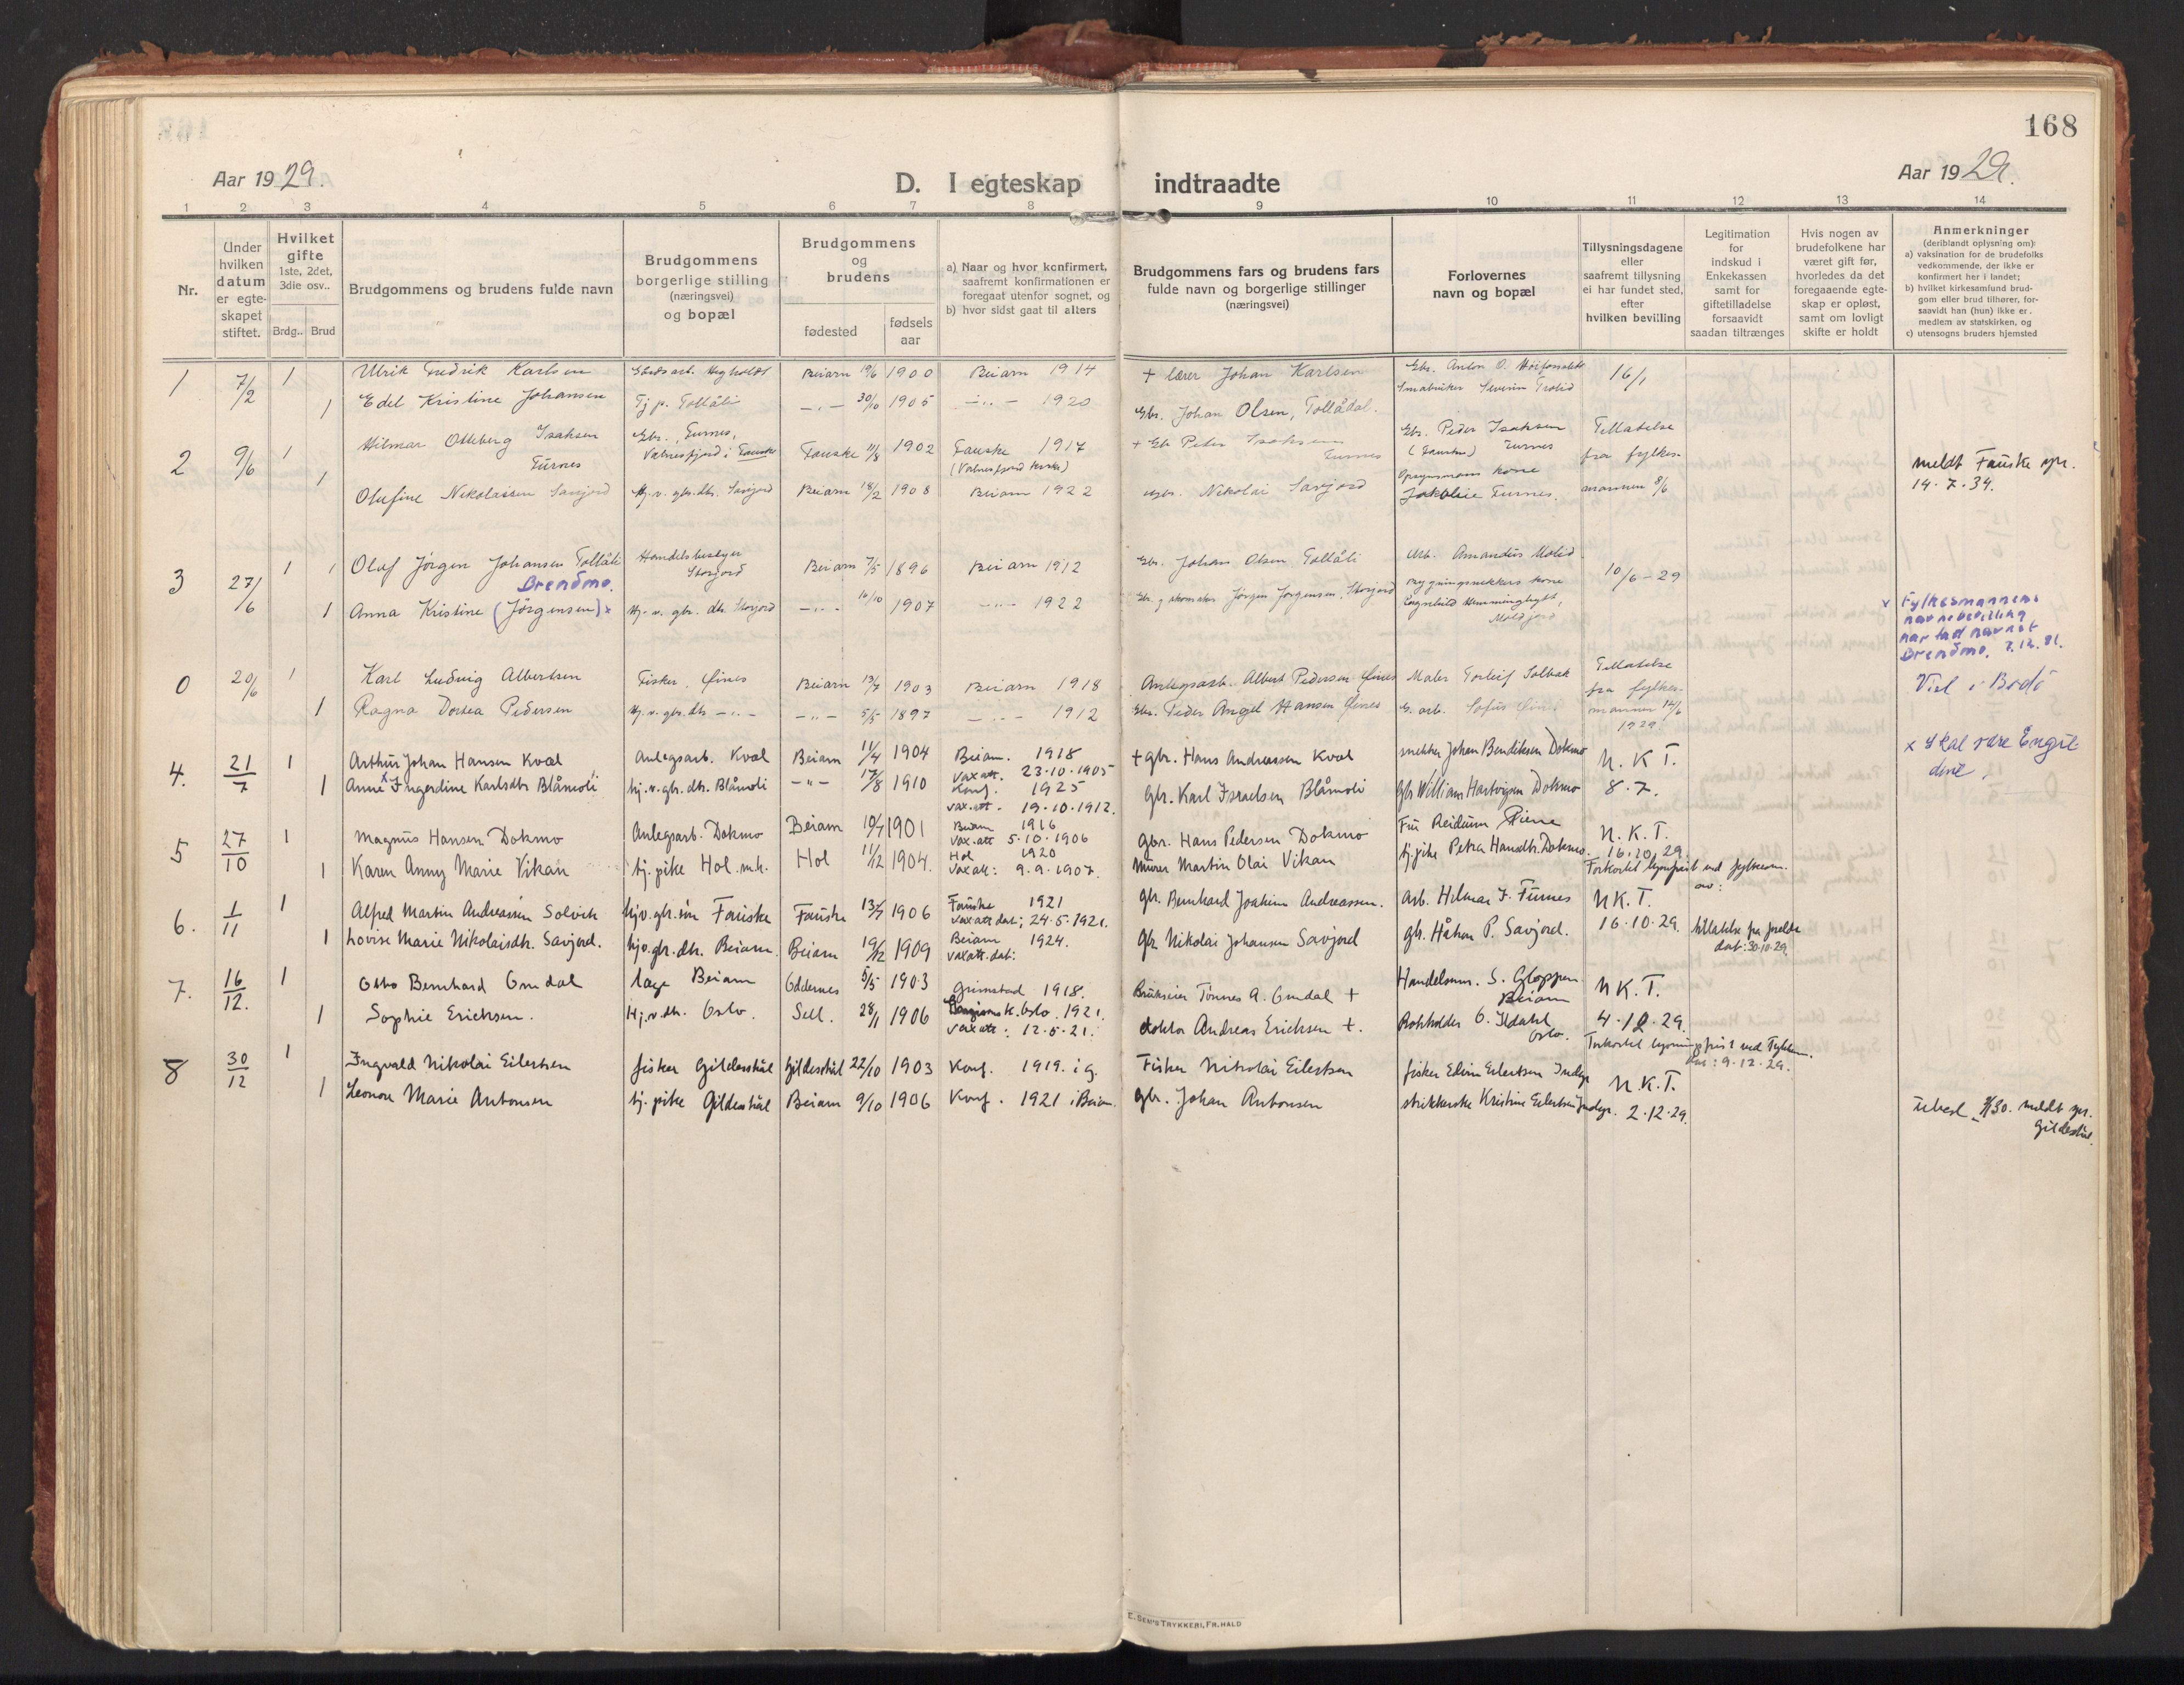 168
Aar 1929.
D. I egteskap indtraadte
Aar 1929.
1 2 3 4 5 6 7 8 9 10 11 12 13 14
Nr.
Under hvilken datum er egteskapet stiftet.
Hvilket gifte 1ste, 2det, 3die osv..
Brdg.. Brud
Brudgommens og brudens fulde navn
Brudgommens borgerlige stilling (næringsvei) og bopæl
Brudgommens og brudens
fødested
fødsels aar
a) Naar og hvor konfirmert, saafremt konfirmationen er foregaat utenfor sognet, og
b) hvor sidst gaat til alters
Brudgommens fars og brudens fars fulde navn og borgerlige stillinger (næringsvei)
Forlovernes navn og bopæl
Tillysningsdagene eller saafremt tillysning ei har fundet sted, efter hvilken bevilling
Legitimation for indskud i Enkekassen samt for giftetilladelse forsaavidt saadan tiltrænges
Hvis nogen av brudefolkene har været gift før, hvorledes da det foregaaende egteskap er opløst, samt om lovligt skifte er holdt
Anmerkninger (deriblandt oplysning om)
a) vaksination for de brudefolks vedkommende, der ikke er konfirmert her i landet;
b) hvilket kirkesamfund brudgom eller brud tilhører, forsaavidt han (hun) ikke er medlem av statskirken, og
c) utensogns bruders hjemsted
1 7/2 1 Ulrik Fredrik Karlsen Beiarn 19/6 1900 Beiarn 1914 + lærer Johan Karlsen 16/1
1 Edel Kristine Johansen Tj. p. Tollåli -"- 30/10 1905 -"- 1920 Gbr. Johan Olsen, Tollådal.
2 9/6 1 Hilmar Olteberg Isaksen Furnes Gbr., Furnes, Valnesfjord i Fauske Fauske 11/8 1902 Fauske 1917 (Valnesfjord kirke) + Gb Peter Isaksen Furnes Gbr. Peder Isaksen (Fauske) Furnes Tillatelse fra fylkesmannen 8/6
1 Olufine Nikolaisen Savjord Hj. v. gbr. dtr. Savjord Beiarn 18/2 1908 Beiarn 1922 Gbr. Nikolai Savjord kone Furnes.
meldt Fauske spr. 14.7.34.
3 27/6 1 Olaf Jörgen Johansen Tollåli Handelsbestyrer Storjord Beiarn 7/5 1896 Beiarn 1912 Gbr. Johan Olsen Tollåli Amandus Molid 10/6-29
Brendmo.
1 Anna Kristine (Jörgensen) x Hj. v. gbr. dtr. Storjord -"- 16/10 1907 -"- 1922 Gbr. og skomaker Jörgen Jörgensen, Storjord Bygningssnekkers kone Ragnhild Hemminghytt, Moldjord
x Fylkesmannens navnebevilling har tatt navnet Brendmo. 7.12.81.
0 20/6 1 Karl Ludvig Albertsen Fisker, Øines Beiarn 13/7 1903 Beiarn 1918 Anlegsarb. Albert Pedersen Øines Maler Torleif Solbak Tillatelse fra fylkesmannen 14/6 1929. Viet i Bodö
1 Ragna Dortea Pedersen Hj. v. gbr. dtr -"- -"- 5/5 1897 -"- 1912 Gbr. Peder Angel Hansen Øines G. arb. Sofus Øines
4. 21/7 1 Arthur Johan Hansen Kval Anlegsarb. Kval Beiarn 11/4 1904 Beiarn. 1918 vax att. 23.10.1905 + gbr. Hans Andreassen Kval snekker Johan Bendiksen Dokmo N.K.T. 8.7.
1 Anne x Ingerdine Karlsdtr. Blåmoli hj. v. gbr. dtr. Blåmoli -"- 17/8 1910 Konf. 1925 vax. att. 19.10.1912. Gbr. Karl Israelsen Blåmoli Gbr William Hartvigsen Dokmo
x Skal være Engeldine
5 27/10 1 Magnus Hansen Dokmo Anlegsarb. Dokmo Beiarn 10/7 1901 Beiarn 1916 vax. att 5.10.1906 Gbr. Hans Pedersen Dokmo Fru Reidunn N.K.T. 16.10.29.
1 Karen Anny Marie Vikan tj. pike Hol. m.k. Hol 11/12 1904. Hol 1920 vax att: 9.9.1907. Murer Martin Olai Vikan tj. pike Petra Hansdtr. Dokmo.
Forkortet lysnfrist ved fylkesm. av:
6. 1/11 1 Alfred Martin Andreassen Solvik hjv. gbr. sön Fauske Fauske 13/7 1906 Fauske 1921 vax att dat: 24.5.1921. gbr. Bernhard Joakim Andreassen. Arb. Hilmar I. Furnes N.K.T. 16.10.29. tillatelse fra dat: 30.10.29.
1 Lovise Marie Nikolaisdtr. Savjord. hjv. gbr. dtr. Beiarn. Beiarn 19/12 1909 Beiarn 1924. vax att. dat: Gbr Nikolai Johansen Savjord gbr. Håkon P. Savjord.
7. 16/12. 1 Otto Bernhard Omdal læge Beiarn Oddernes 5/5 1903 Grimstad 1918. Brukseier Tönnes A. Omdal + Handelsmn. S. Gloppen Beiarn N.K.T. 4.12.29.
1 Sophie Erichsen. Hj. v. dtr. Oslo. Sell. 28/1 1906 k. Oslo. 1921. vax att: 12.5.21. doktor Andreas Erichsen +. Bokholder O. Ildahl Oslo.
Forkortet lysningsfrist ved Fylkesm. dat: 9.12.29.
8 30/12 1 Ingvald Nikolai Eilertsen fisker Gildeskål Gildeskål 22/10 1903 Konf. 1919. i G. Fisker Nikolai Eilertsen fisker Edvin Eilertsen Indyr N.K.T. 2.12.29.
1 Leonore Marie Antonsen tj. pike Gildeskål Beiarn 9/10 1906 Konf. 1921 i Beiarn. gbr. Johan Antonsen strikkerske Kristine Eilertsen Indyr.
meldt spr. Gildeskål.
E. SEM'S TRYKKERI, FR. HALD